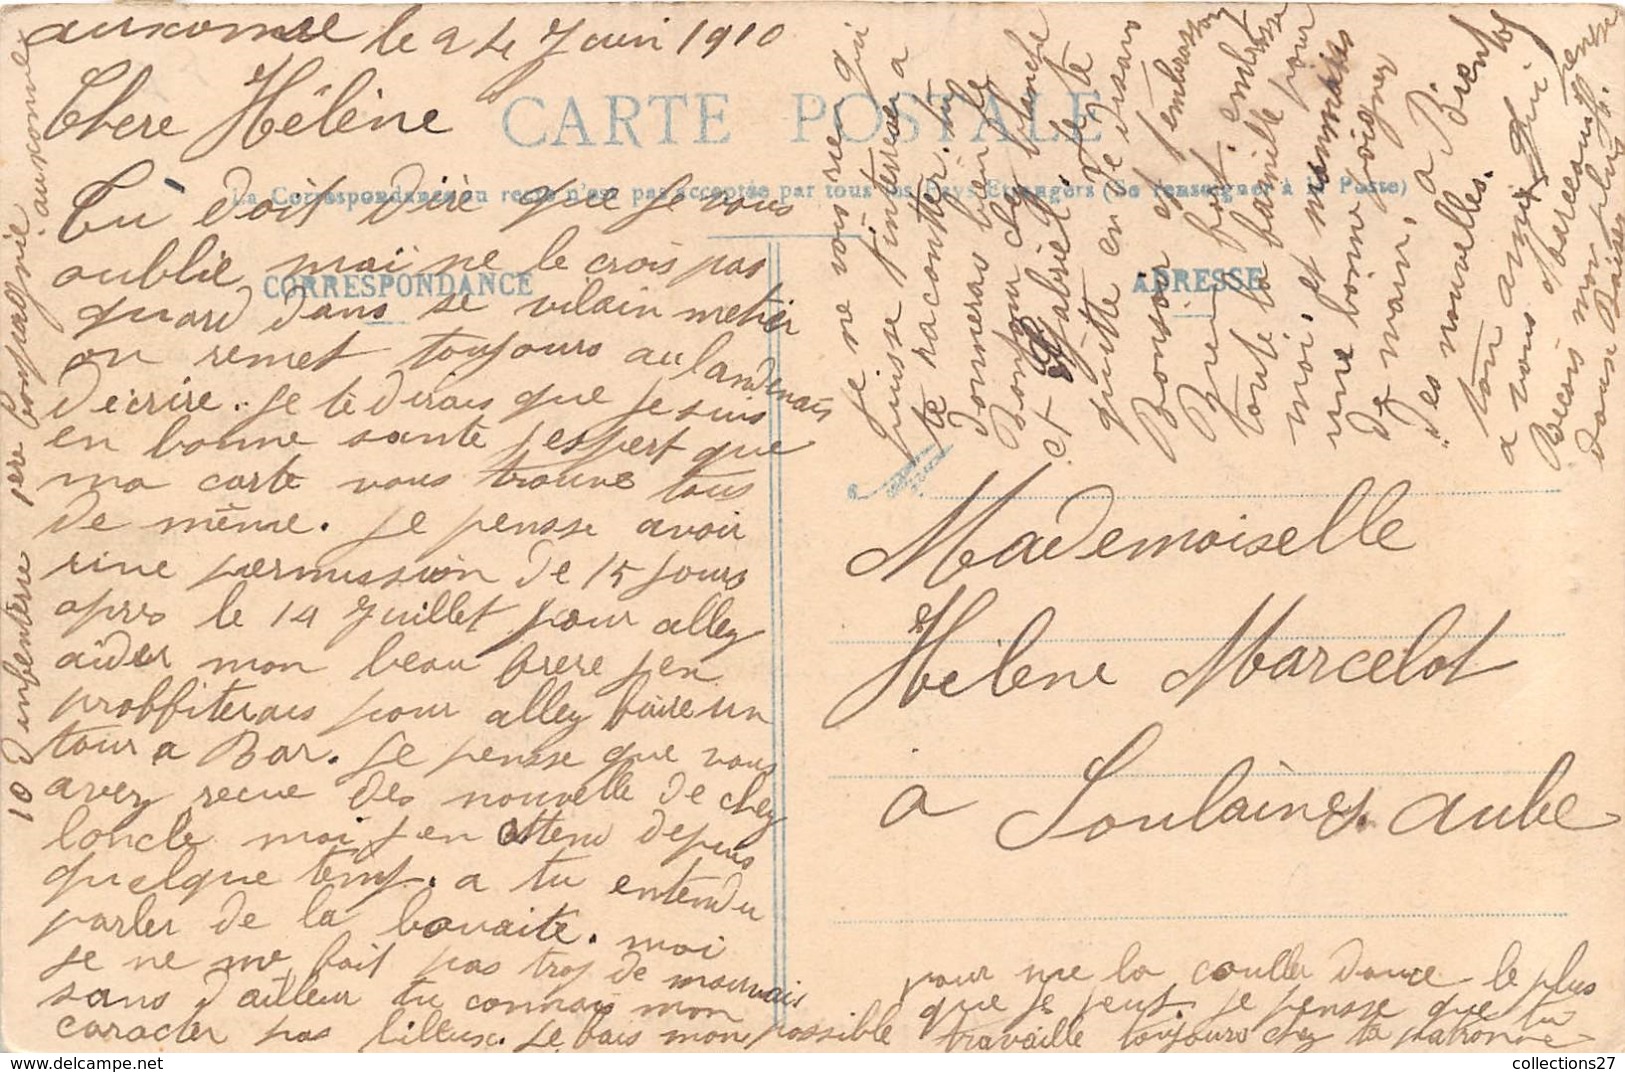 auxonne le 24 Juin 1910
Chere Hélène
CARTE POSTALE
La Correspondance au recto n'est pas acceptée par tous les Pays Etrangers (Se renseigner à la Poste)
CORRESPONDANCE
ADRESSE
Tu doit dire que je vous
oublie mai ne le crois pas
quard dans se vilain metier
on remet toujours au landemais
décrire. je te dirais que je suis
en bonne sante jespert que
ma carte vous trouve tous
de même. je pensse avoir
une permission de 15 jours
apres le 14 Juillet pour alley
aider mon beau frere jen
proffiterais pour alley faire un
tour a Bar. je pensse que vous
avez recue des nouvelle de chez
loncle moi jen attend depuis
quelque temp. a tu entendu
parler de la
moi
je ne me fait pas trop de mauvais
sans d'ailleur tu connais mon
caracter pas billeux. je fais mon possible
pour me la couller douce le plus
que je peut. je pensse que tu
travaille toujours chez ta patronne
je ne vois rien qui
puisse t'interesser a
te raconter. tu
donneras bien le
Bonjour chez blanche
et Gabriel. je te
quitte en te disans
Bonsoir et t'embrassan
Bien fort. embrasse
toute la famille pour
moi. et mommais
une bonne poigner
de main,
des nouvelles. a Bientot
ton ami qui pense
a vous Marceau
Recois mon plus
doux Baiser
10 d'infenterie 1ere Compagnie auxonne
Mademoiselle
Hélène Marcelot
a Soulaines aube
collections27